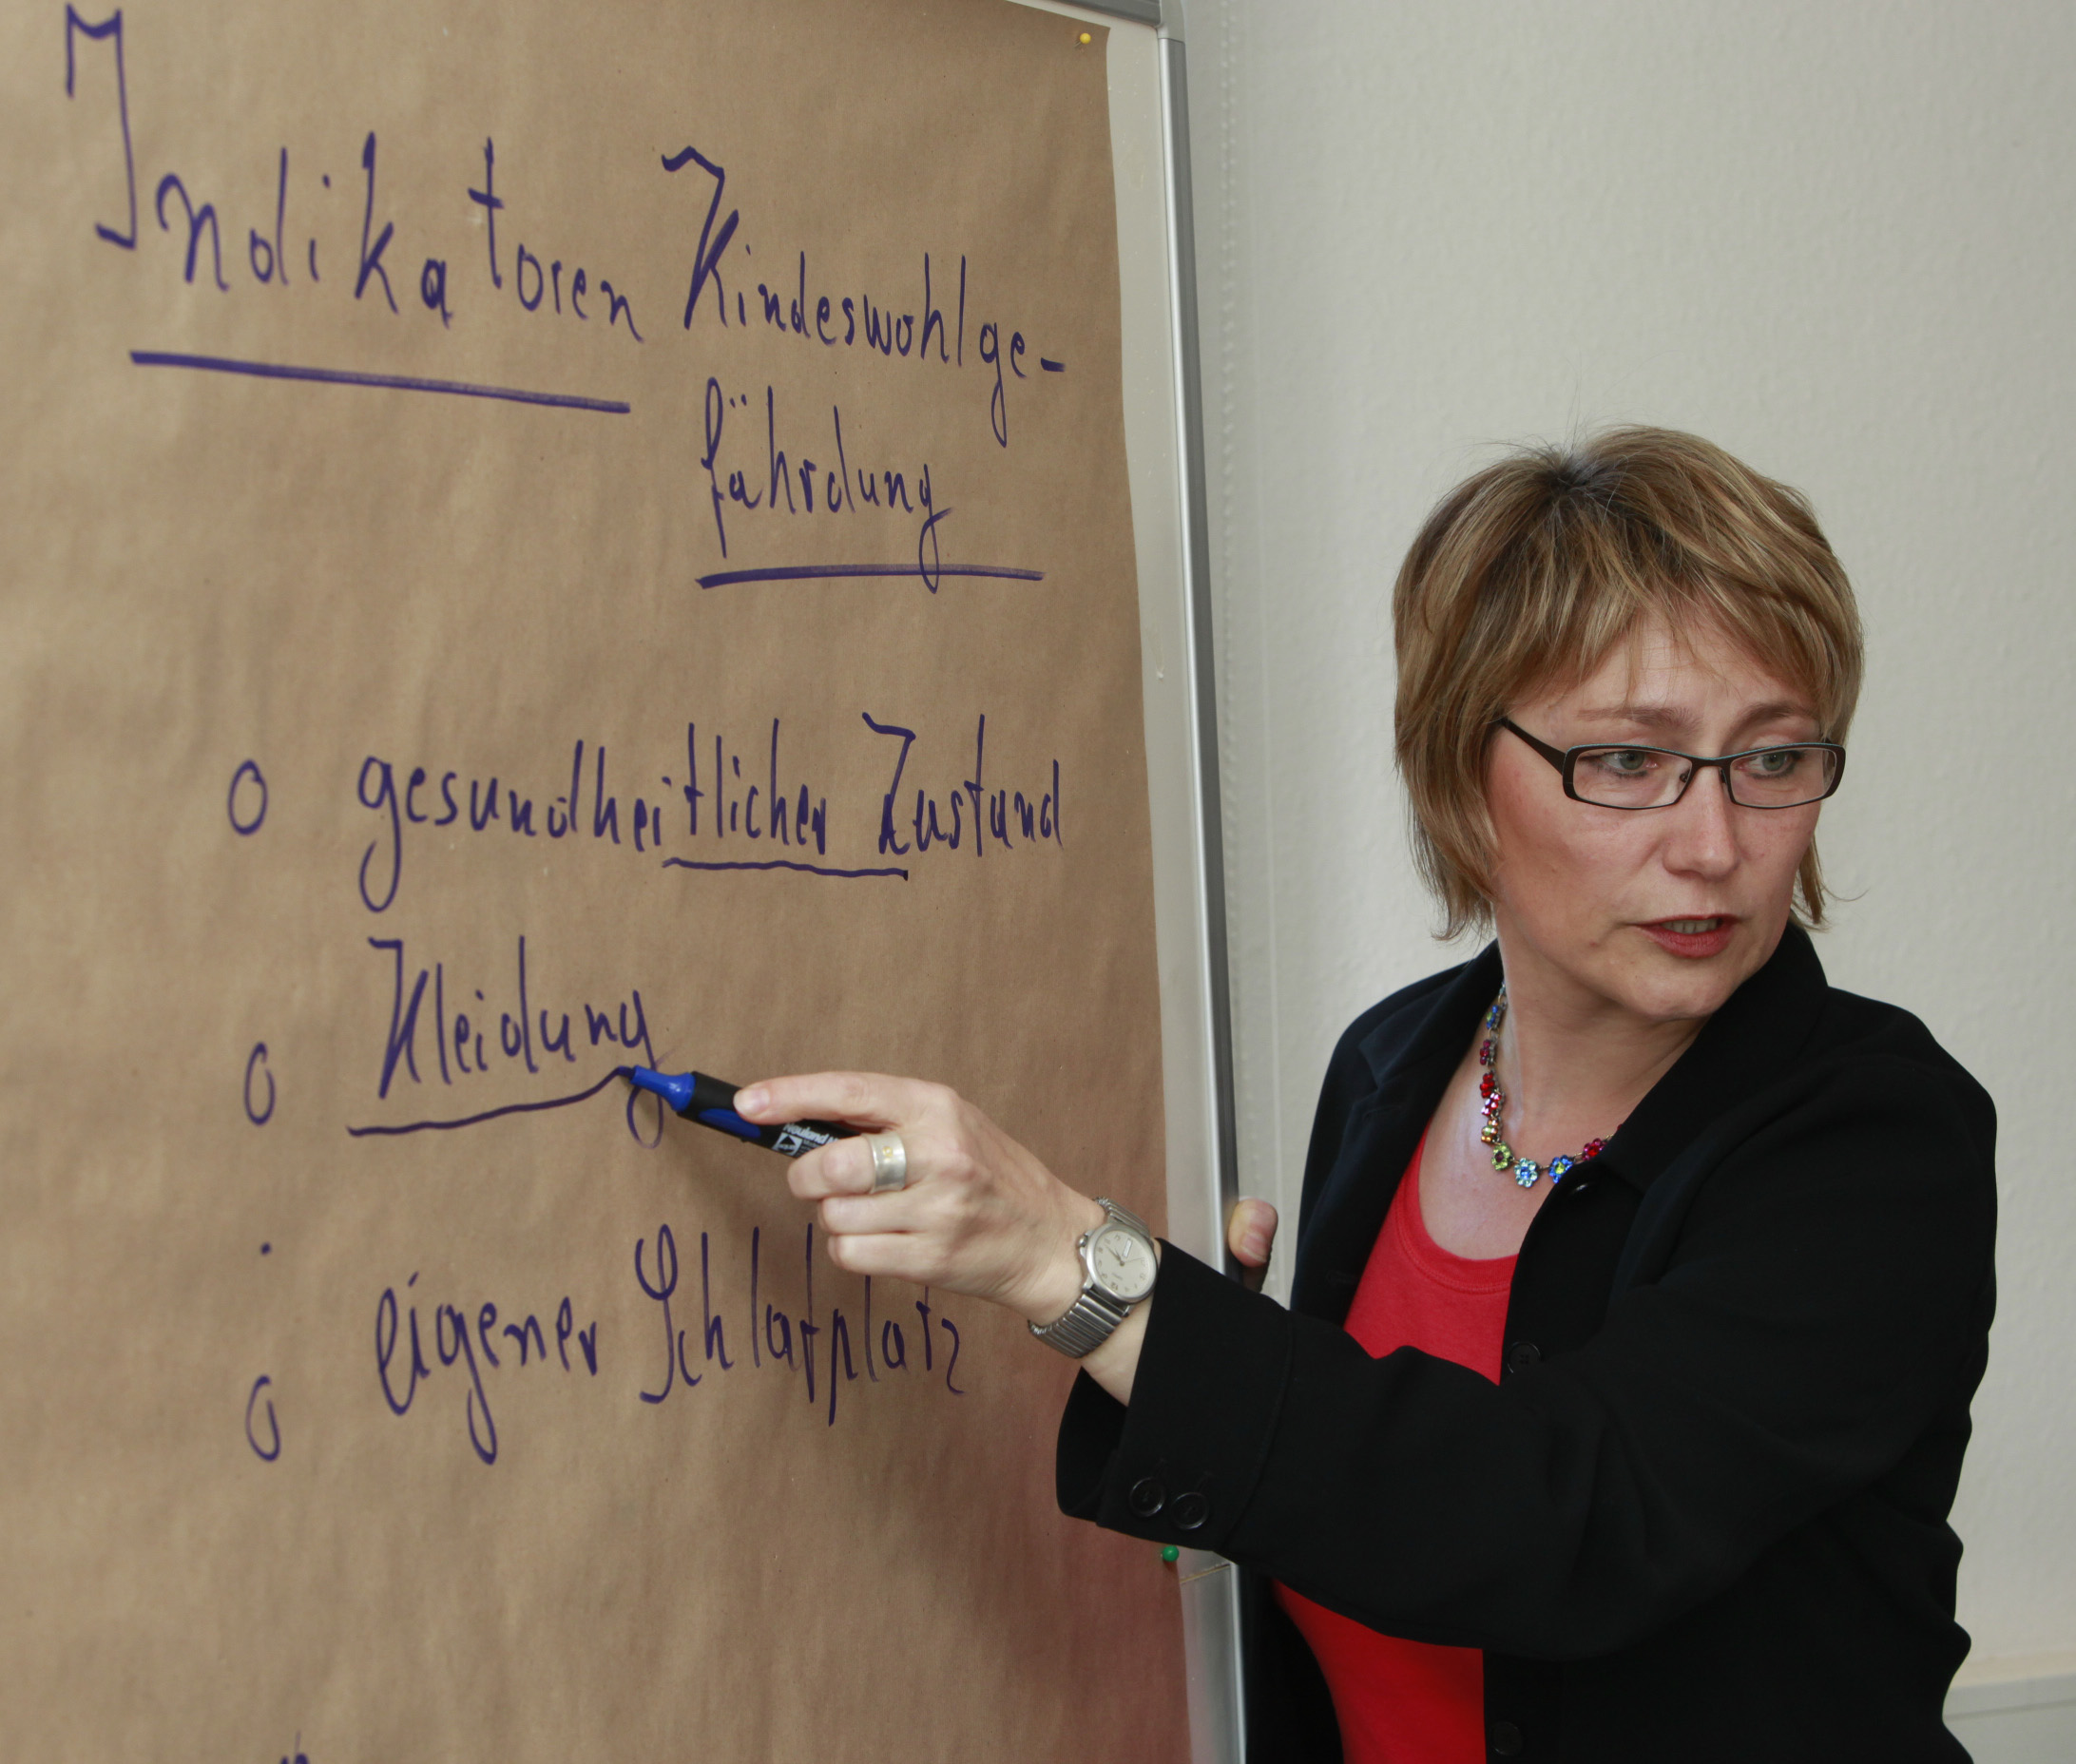 Indikatoren Kindeswohlge-
fährdung
o gesundheitlicher Zustand
o Kleidung
o eigener Schlafplatz
Neuland